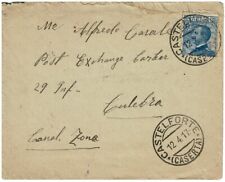 Me Alfredo Casale
Post Exchange Barber
29 Inf.
Culebra
Canal Zone
CASTELFORTE
(CASERTA)
CASTELFORTE
12.4.17
(CASERTA)